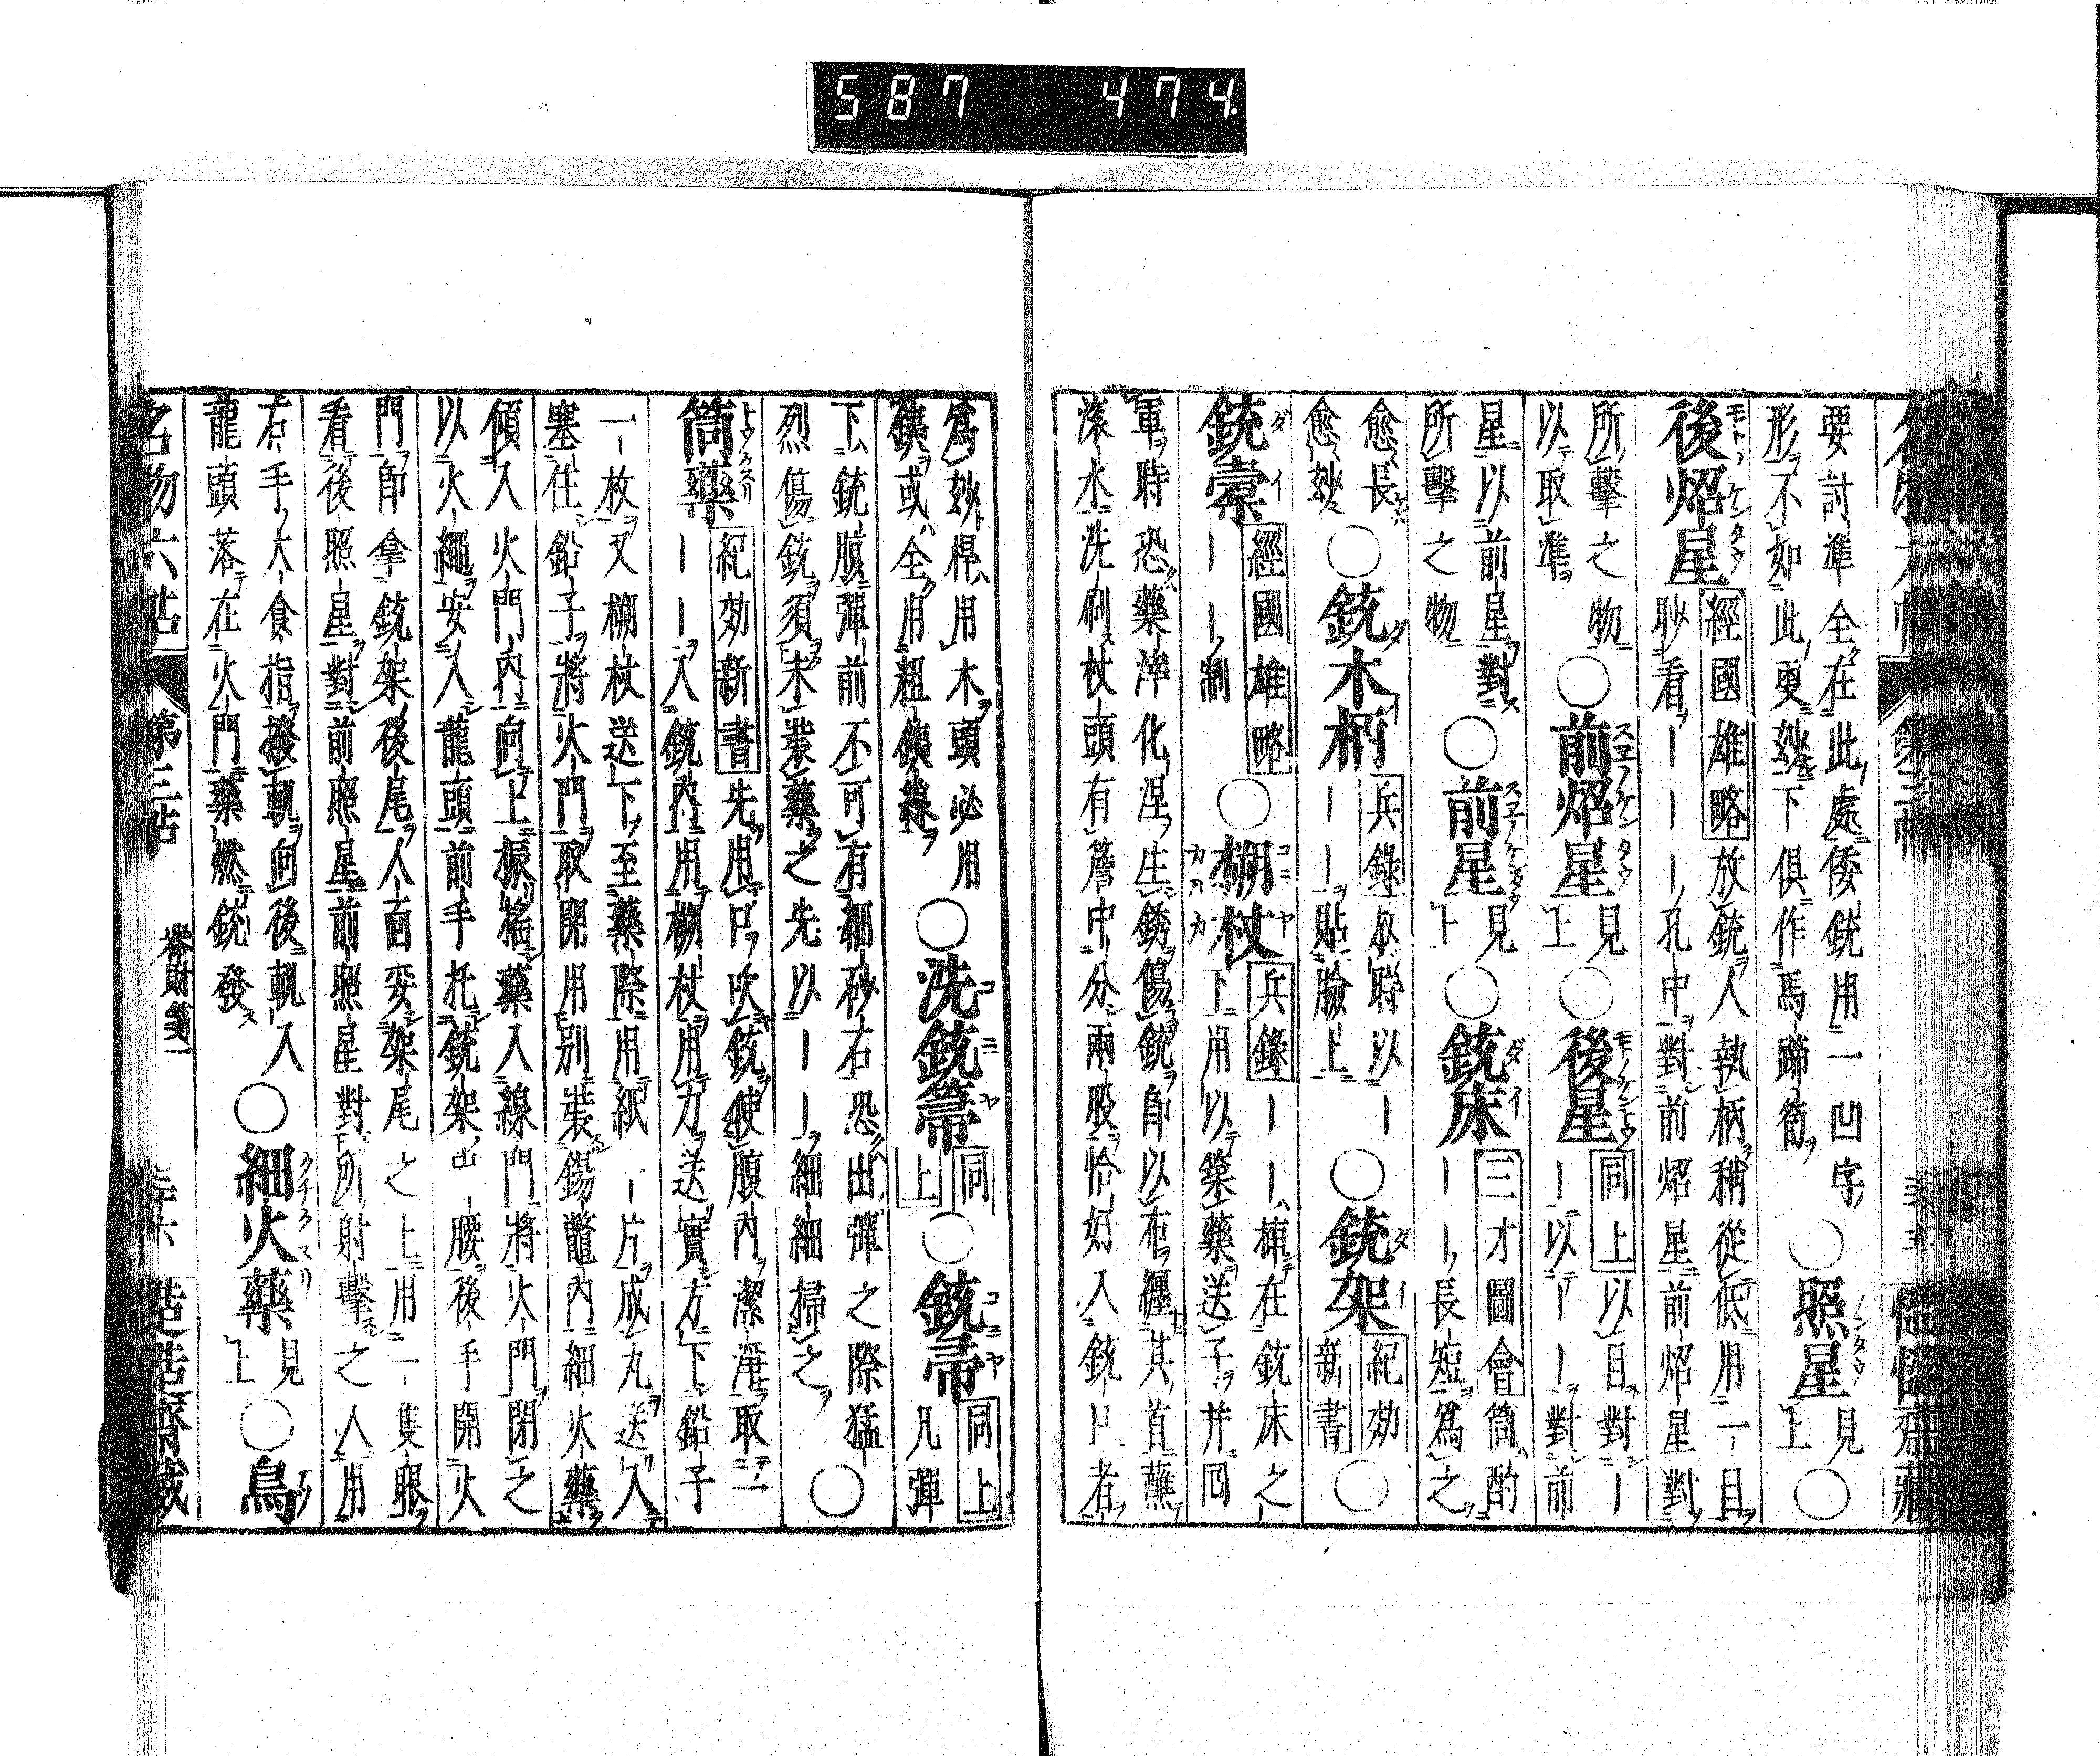 587 474.
要討準全在此處倭銃用一凹字
形不如此更妙下俱作馬蹄筍
○照星見上○
後炤星 經國雄略 放銃人執柄稍從低用一目
眇看｜｜｜孔中對前炤星前炤星對
所擊之物
以取準
○前炤星見上○後星 同上 以目對｜
｜以｜｜對前
星以前星對
所擊之物
○前星見上○銃床 三才圖會 筒酌
｜｜長短爲之
愈長
愈妙
○銃木柄 兵錄
｜｜｜貼臉上
○銃架 紀効新書○
銃橐 經國雄略
｜｜制
○搠杖 兵錄 ｜｜揷在銃床之
下用以築藥送子并
軍時恐藥滓化涅生銹傷銃卽以布纏其首蘸
滚水洗刷杖頭有簷中分兩股恰好入銃口者
爲妙桿用木頭必用
鐵或全用粗鐵線
○洗銃箒 同上○銃帚 同上
凡彈
下銃腹彈前不可有細砂石恐出彈之際猛
烈傷銃須未裝藥之先以｜｜細細掃之
○
筒藥 紀効新書 先用口吹銃使腹內潔淨取
｜｜入銃內用搠杖用力送實方下鉛子
一枚又搠杖送下至藥際用紙一片成丸送入
塞住鉛子將火門取開用別裝錫鼈內細火藥
傾入火門內向上振搖藥入線門將火門閉之
以火繩安入龍頭前手托銃架出腰後手開火
門卽拿銃架後尾人面妥架尾之上用一隻眼
看後照星對前照星前照星對所射擊之人用
右手大食指撥軌向後軌入
龍頭落在火門藥燃銃發
○細火藥見上○鳥
名物六帖 第三帖 器財箋二